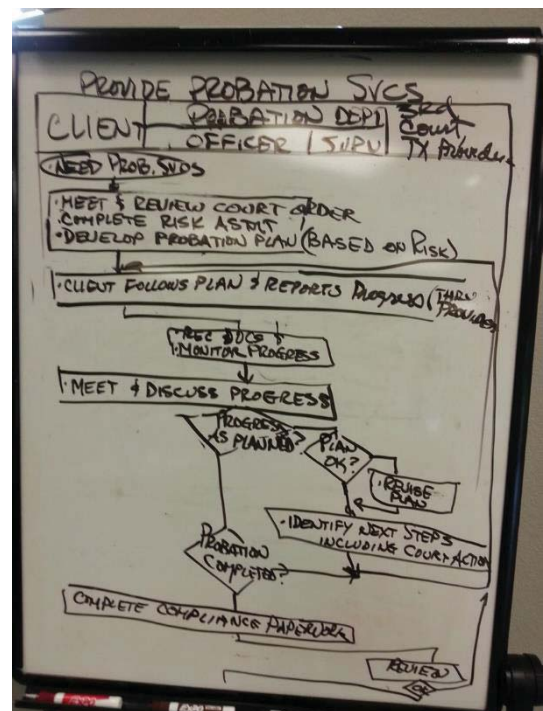 PROVIDE PROBATION SVCS
CLIENT
PROBATION DEPT
OFFICER | SUPV
3RD
COURT,
TX PROVIDER
• NEED PROB. SVCS
• MEET & REVIEW COURT ORDER
• COMPLETE RISK ASMT
• DEVELOP PROBATION PLAN (BASED ON RISK)
• CLIENT FOLLOWS PLAN & REPORTS PROGRESS (THRU PROVIDER
• REC DOCS &
• MONITOR PROGRESS
• MEET & DISCUSS PROGRESS
PROGRESS
AS PLANNED?
PLAN
OK?
• REVISE
PLAN
• IDENTIFY NEXT STEPS
INCLUDING COURT ACTION
PROBATION
COMPLETED?
COMPLETE COMPLIANCE PAPERWORK
REVIEW
OK
EXPO
EXPO